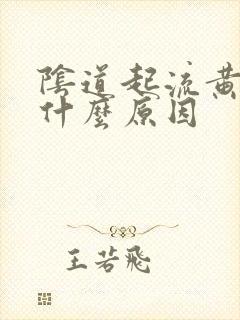 陰道起流黃
什麼原因
王若飛